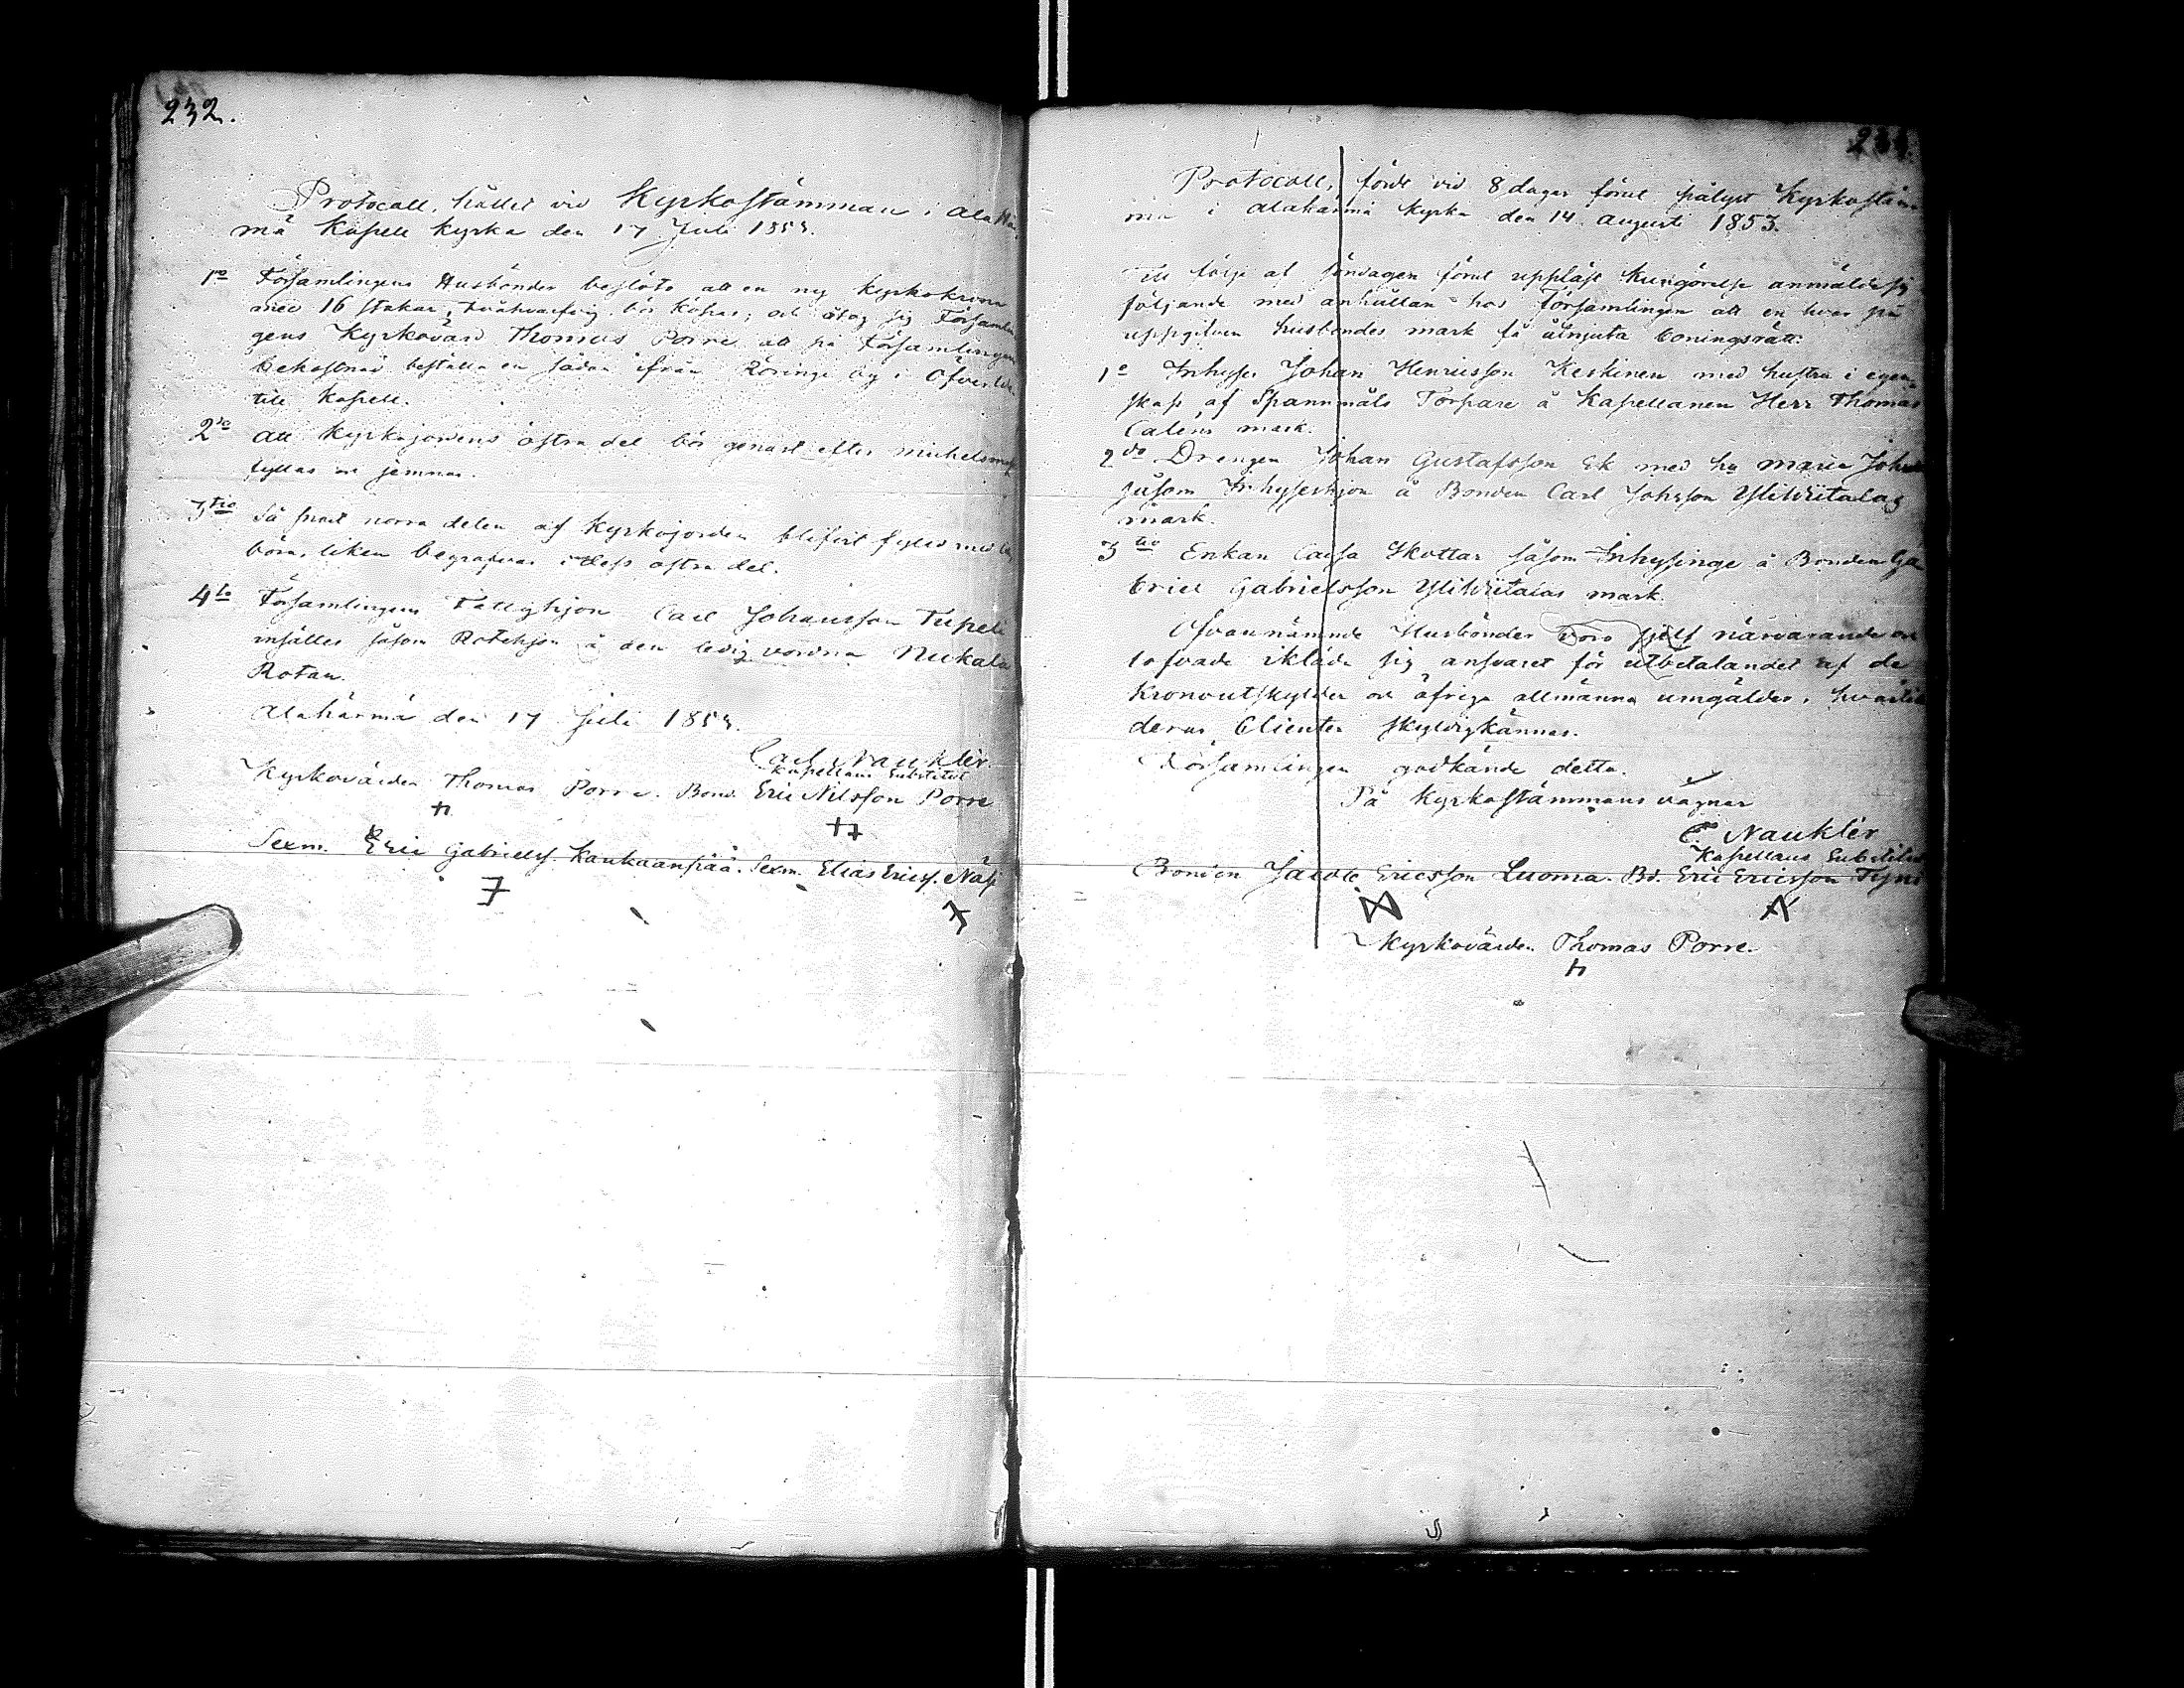 232.
Protocoll, hållet vid Kyrkostämman i Alahär
mä Kapell kyrka den 17 Juli 1853.
1o Församlingens Husbönder beslöto att en ny kyrkokrona
med 16 stakar, tvåhvarfvig, bör köpas; och åtog sig Församlin
gens Kyrkovärd Thomas Porre att på Församlingens
bekostnad beställa en sådan ifrån Röringe by i
till Kapell.
2do Att Kyrkojordens östra del bör genast efter michelsmess
fyllas och jemnas.
3tio Så snart norra delen af Kyrkojorden blifvit fylld med
böra liken begrafvas i dess östra del.
4to Församlingens Fattighjon Carl Johansson Tupeli
införes såsom Rotehjon å den ledig vordna Nickala
Rotan.
Alahärmä den 17 Juli 1853.
Carl Nauklér.
Kapellans Substitut
Kyrkovärden Thomas Porre. Bond. Eric Nilsson Porre
Sexm. Eric Gabrielss. Kaukaanpää. Sexm. Elias Ericss. Näs
233.
Protocoll, fördt vid 8 dagar förut pålyst Kyrkostäm
ma i Alahärmä kyrka den 14 Augusti 1853.
Till följe af söndagen förut uppläst kungörelse anmälde sig
följande med anhållan hos Församlingen att en hvar på
uppgifven husbondes mark få åtnjuta boningsrätt:
1o Inhyses Johan Henricsson Keskinen med hustru i egen-
skap af Spannmåls Torpare å Kapellanen Herr Thomas
Calens mark.
2do Drengen Johan Gustafsson Ek med hu Maria Johans
såsom Inhyseshjon å Bonden Carl Johsson Yliwiitalas
mark.
3tio Enkan Caisa Skottar såsom Inhysinge å Bonden Ga
briel Gabrielsson Yliwiitalas mark.
Ofvannämnde Husbönder voro sjelf närvarande och
lofvade ikläda sig ansvaret för utbetalandet af de
Kronoutskylder och öfriga allmänna umgälder, hvartill
deras Clienter skyldigkännas.
Församlingen godkände detta.
På Kyrkostämmans vägnar
C. Nauklér
Kapellans Substitut
Bonden Jacob Ericsson Luoma. Bd. Eric Ericsson Tyni
Kyrkovärden Thomas Porre.